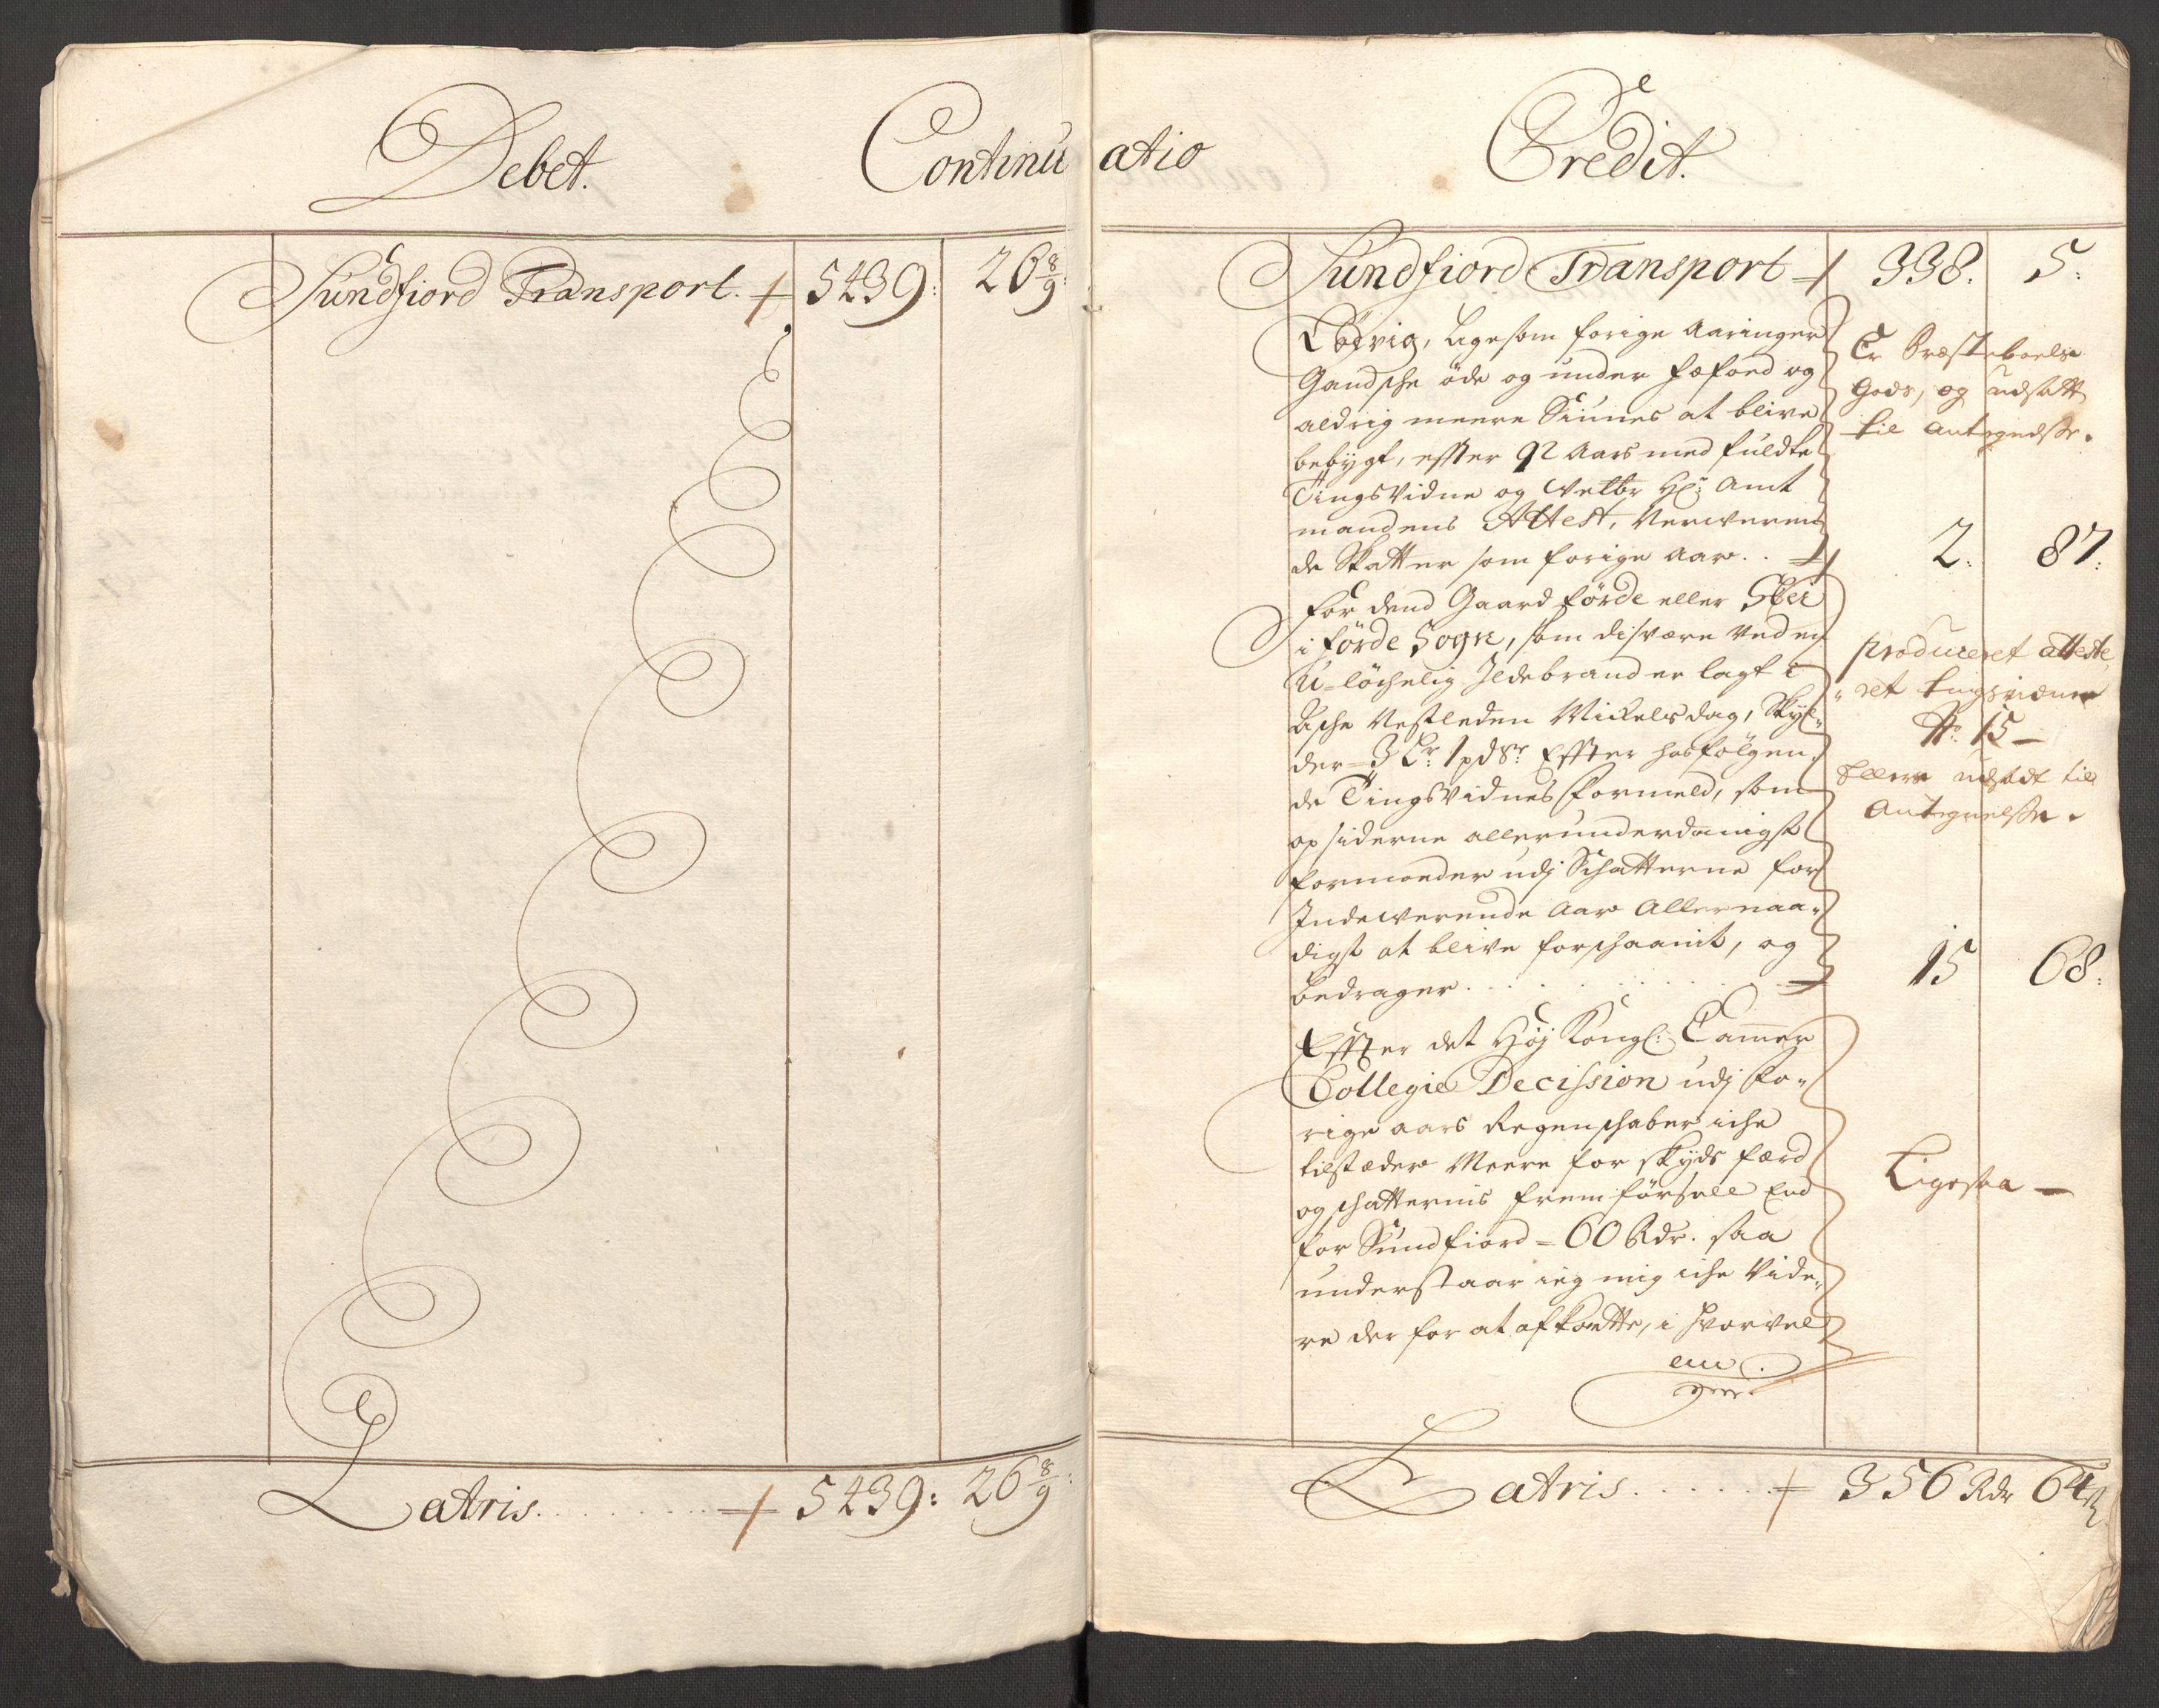 Debet.
Continuatio
Credit.
Sundfiord Transport. 5439: 26 8/9:
Latris. 5439: 26 8/9:
Sundfiord Transport 338. 5:
Lögvig, ligesom forige Aaringer
Gandsche öde og under fæfoed og
aldrig meere Siunes at blive
bebygt, effter 92 Aars med fuldte
Tings Vidne og velbr H: Amt
mandens Attest, Verweren
de Skatter som forige Aar. 2. 87:
Er Præsteboels
Gods, og udsatt
til antegnelse.
for dend Gaard förde eller
i förde Sogn, som disvære ved en
u-löchelig Ildebrand er lagt i
Asche Vestleden Mickelsdag, Skyl-
der 3 L: 1 pd Sr Effter hosfölgen-
de Tingsvidnes formeld, som
opsiderne allerunderdanigst
formoeder udj Schatterne for
Indeværende Aar Allernaa-
digst at blive forschaanit, og
bedrager 15 68:
produceret atteste
ret tingsvidne
No. 15
ellers udsadt til
Antegnelse.
Effter det Höj Kongl: Cammer
Collegie Decission udj fo-
rige aars Regenschaber iche
tilstæder Meere for skyds færd
og schatternis fremförsell End
for Sundfiord = 60 Rdr. saa
understaar ieg mig iche Vide-
re der for at afkortte, i hvorvel
Ligesaa
Latris. 356 Rdr 64 ß